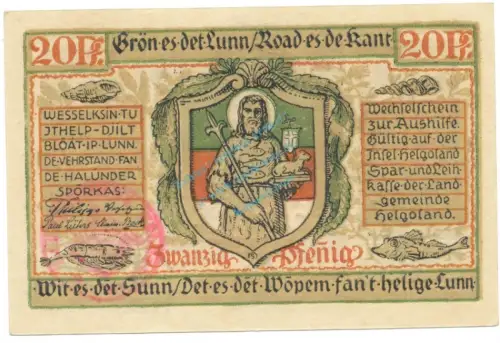 20Pf. Grön·es·det·Lunn/Road·es·de·Kant 20Pf.
WESSELKSIN·TU
JTHELP·DJILT
BLOAT·IP·LUNN.
DE·VEHRSTAND·FAN
DE·HALUNDER
SPORKAS:
Wechselschein
zur Aushilfe.
Gültig auf der
Insel Helgoland
Spar-und Leih-
kasse der Land-
gemeinde
Helgoland.
Zwanzig Pfenig
Wit·es·det·Sunn/Det·es·det·Wöpem·fan't·helige·Lunn